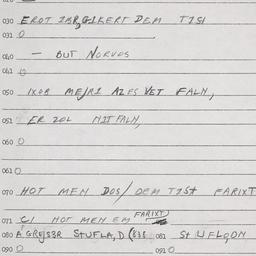 030 EROT IBR,GIKERT DEM TISI
031 0
040 — BUT NORVOS
061 0
050 IXOB MEJRI AZES VET FALN,
051 ER ZOL NIT FALN,
060 0
061 0
070 HOT MEN DOS/DEM TISH FARIXT
071 CI HOT MEN EM FARIXT
080 A GREJSER STUFLA, D( 081 St UFLQDN
090 0 091 0